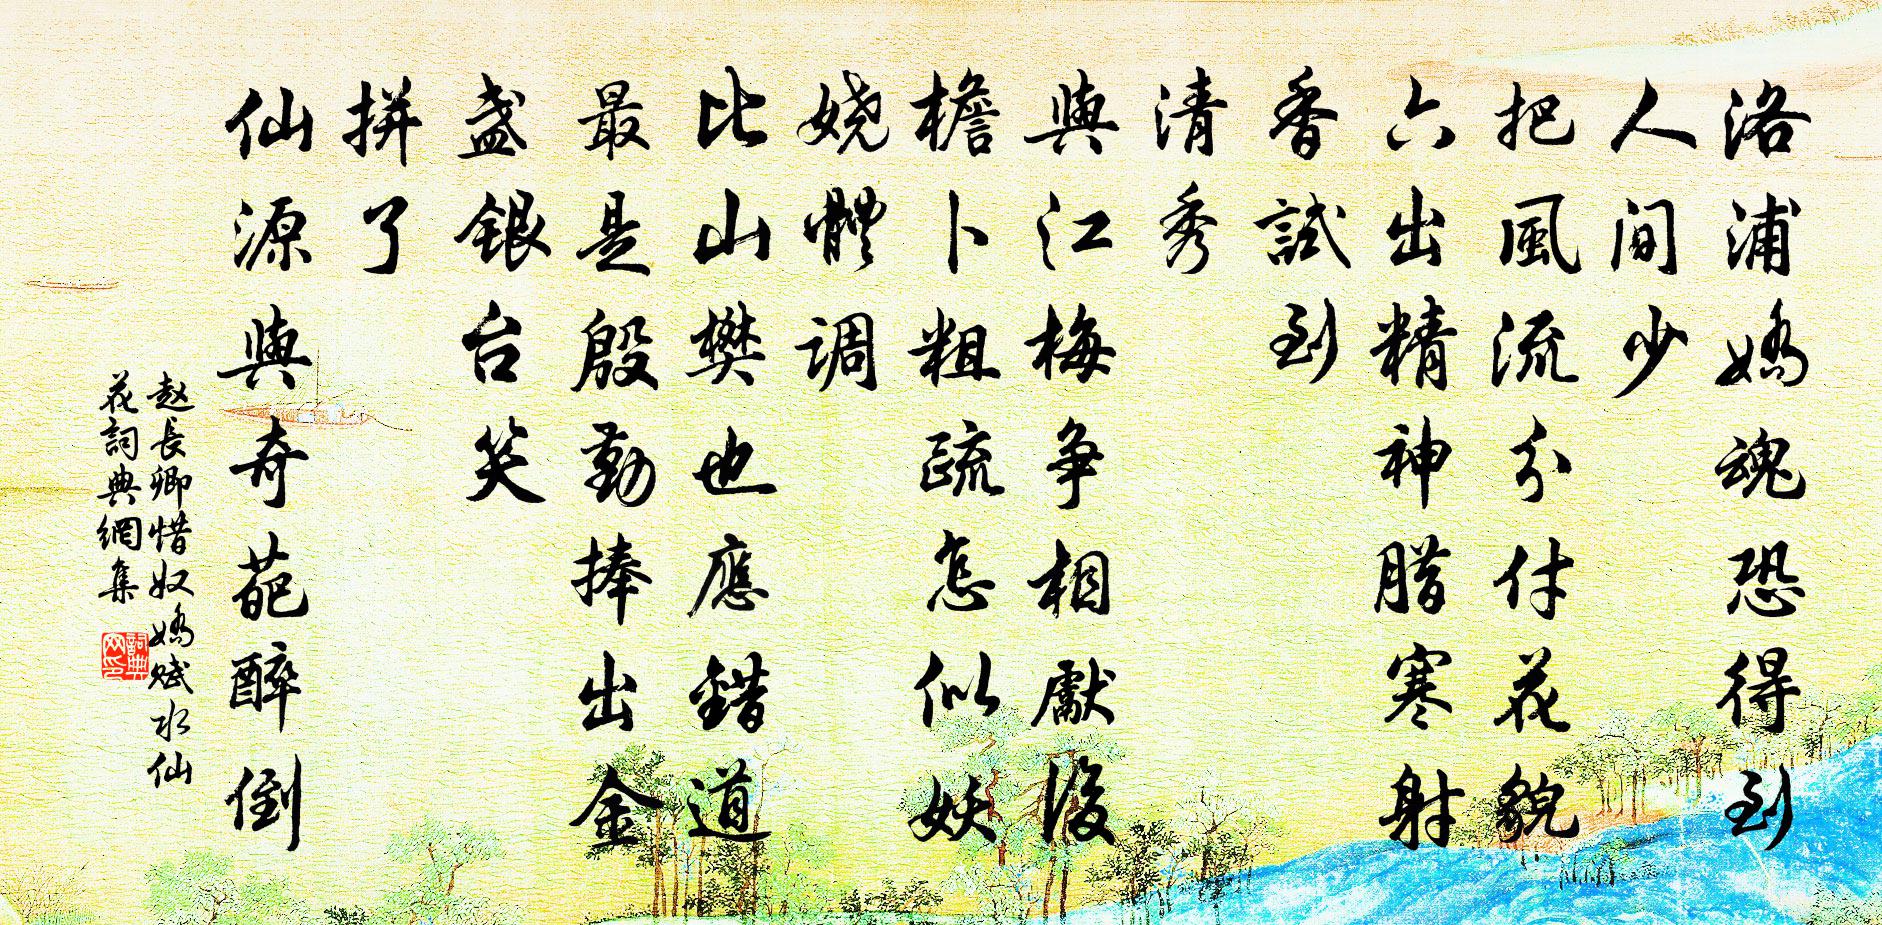 洛浦嬌魂恐得到
人間少
把風流分付花貌
六出精神腊寒射
香試到
清秀
與江梅争相獻後
檐卜粗疏怎似妖
娆體調
比山樊也應錯道
最是殷勤捧出金
盞銀台笑
拼了
仙源與奇葩醉倒
赵長卿惜奴嬌賦水仙
花詞典網集